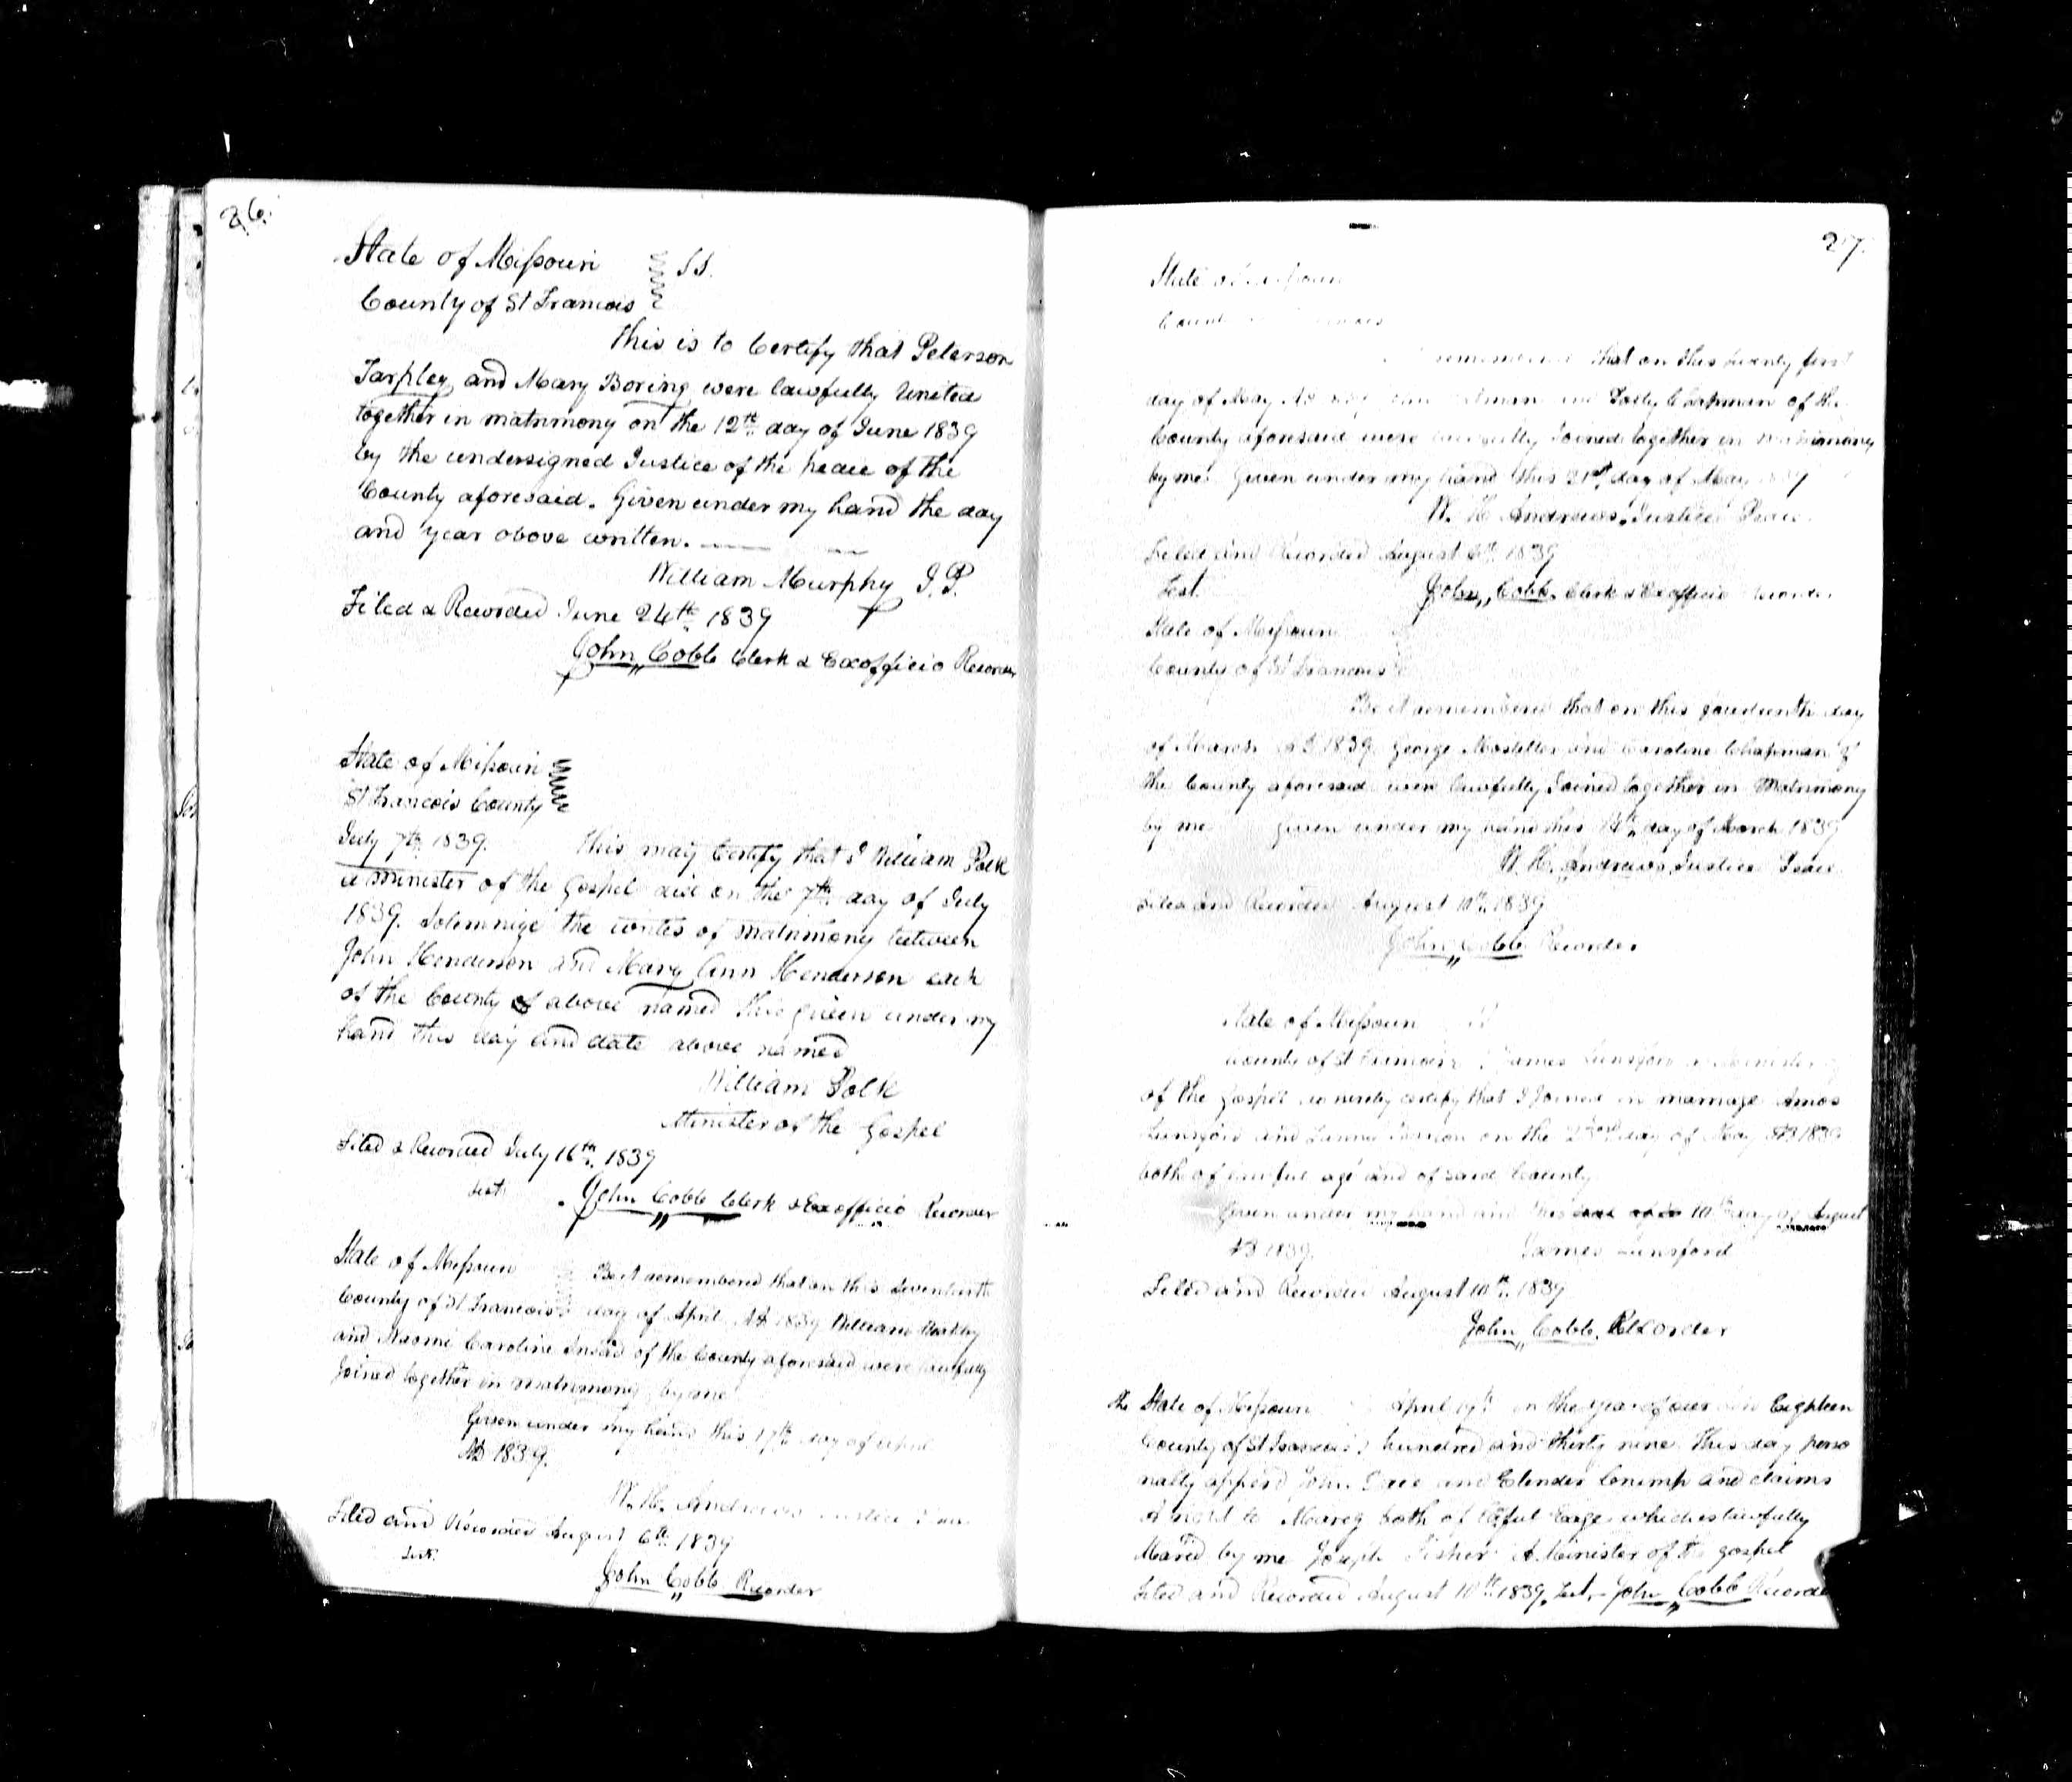 26.
State of Missouri SS.
County of St Francois
This is to Certify that Peterson
Tarpley and Mary Boring were lawfully United
together in matrimony on the 12th day of June 1839
by the undersigned Justice of the peace of the
County aforesaid. Given under my hand the day
and year above written.
William Murphy J.P.
Filed & Recorded June 24th 1839
John Cobb Clerk & Exofficio Recorder
State of Missouri
St Francois County
July 7th 1839. This may Certify that I William Polk
a minister of the Gospel did on the 7th day of July
1839. Solemnize the writes of matrimony between
John Henderson and Mary Ann Henderson each
of the County of above named this given under my
hand this day and date above named
William Polk
Minister of the Gospel
Filed & Recorded July 16th 1839
Test. John Cobb Clerk & Exofficio Recorder
State of Missouri Be it remembered that on this Seventeenth
County of St Francois day of April AD 1839 William
and Naomi Caroline of the County aforesaid were lawfully
Joined together in matrimony by me
Given under my hand this 17th day of April
AD 1839.
W. H. Andrews Justice
Filed and Recorded August 6th 1839
Test.
John Cobb Recorder
27.
State of Missouri
remembered that on this twenty first
day of May and Chapman of the
County aforesaid were lawfully Joined together in matrimony
by me Given under my hand this 21st day of May
W. H. Andrews Justice Peace
Filed and Recorded August 6th 1839
Test. John Cobb Clerk & Exofficio Recorder
State of Missouri
County of St Francois
Be it remembered that on this fourteenth day
of March AD 1839. George Mostiller and Caroline Chapman of
the County aforesaid were lawfully Joined together in Matrimony
by me given under my hand this 14th day of March 1839
W. H. Andrews Justice Peace
Filed and Recorded August 10th 1839
John Cobb Recorder
State of Missouri
County of St Francois James Lunsford a Minister
of the Gospel do hereby certify that I Joined in marriage Amos
Lunsford and on the 23rd day of May AD 1839
both of lawful age and of said County
Given under my hand this 10th day of August
AD 1839. James Lunsford
Filed and Recorded August 10th 1839
John Cobb, Recorder
the State of Missouri April in the year of our Eighteen
County of St Francois hundred and thirty nine This day perso
nally apperd John and Elender Crump and claims
A wright to Marey both of lafful Eage which is lawfully
Mared by me Joseph Fisher A Minister of the gospel
Filed and Recorded August 10th 1839. Test. John Cobb Recorder